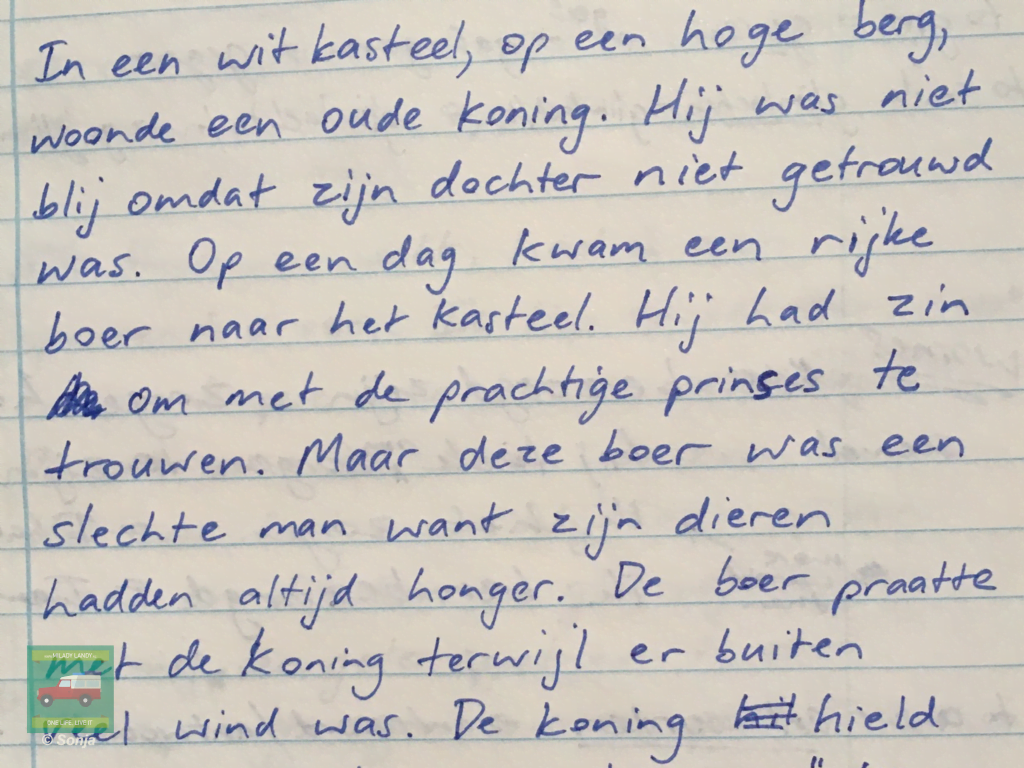 In een wit kasteel, op een hoge berg,
woonde een oude koning. Hij was niet
blij omdat zijn dochter niet getrouwd
was. Op een dag kwam een rijke
boer naar het kasteel. Hij had zin
om met de prachtige prinses te
trouwen. Maar deze boer was een
slechte man want zijn dieren
hadden altijd honger. De boer praatte
met de koning terwijl er buiten
veel wind was. De koning hield
LADY LANDY
ONE LIFE. LIVE IT
© Sonja